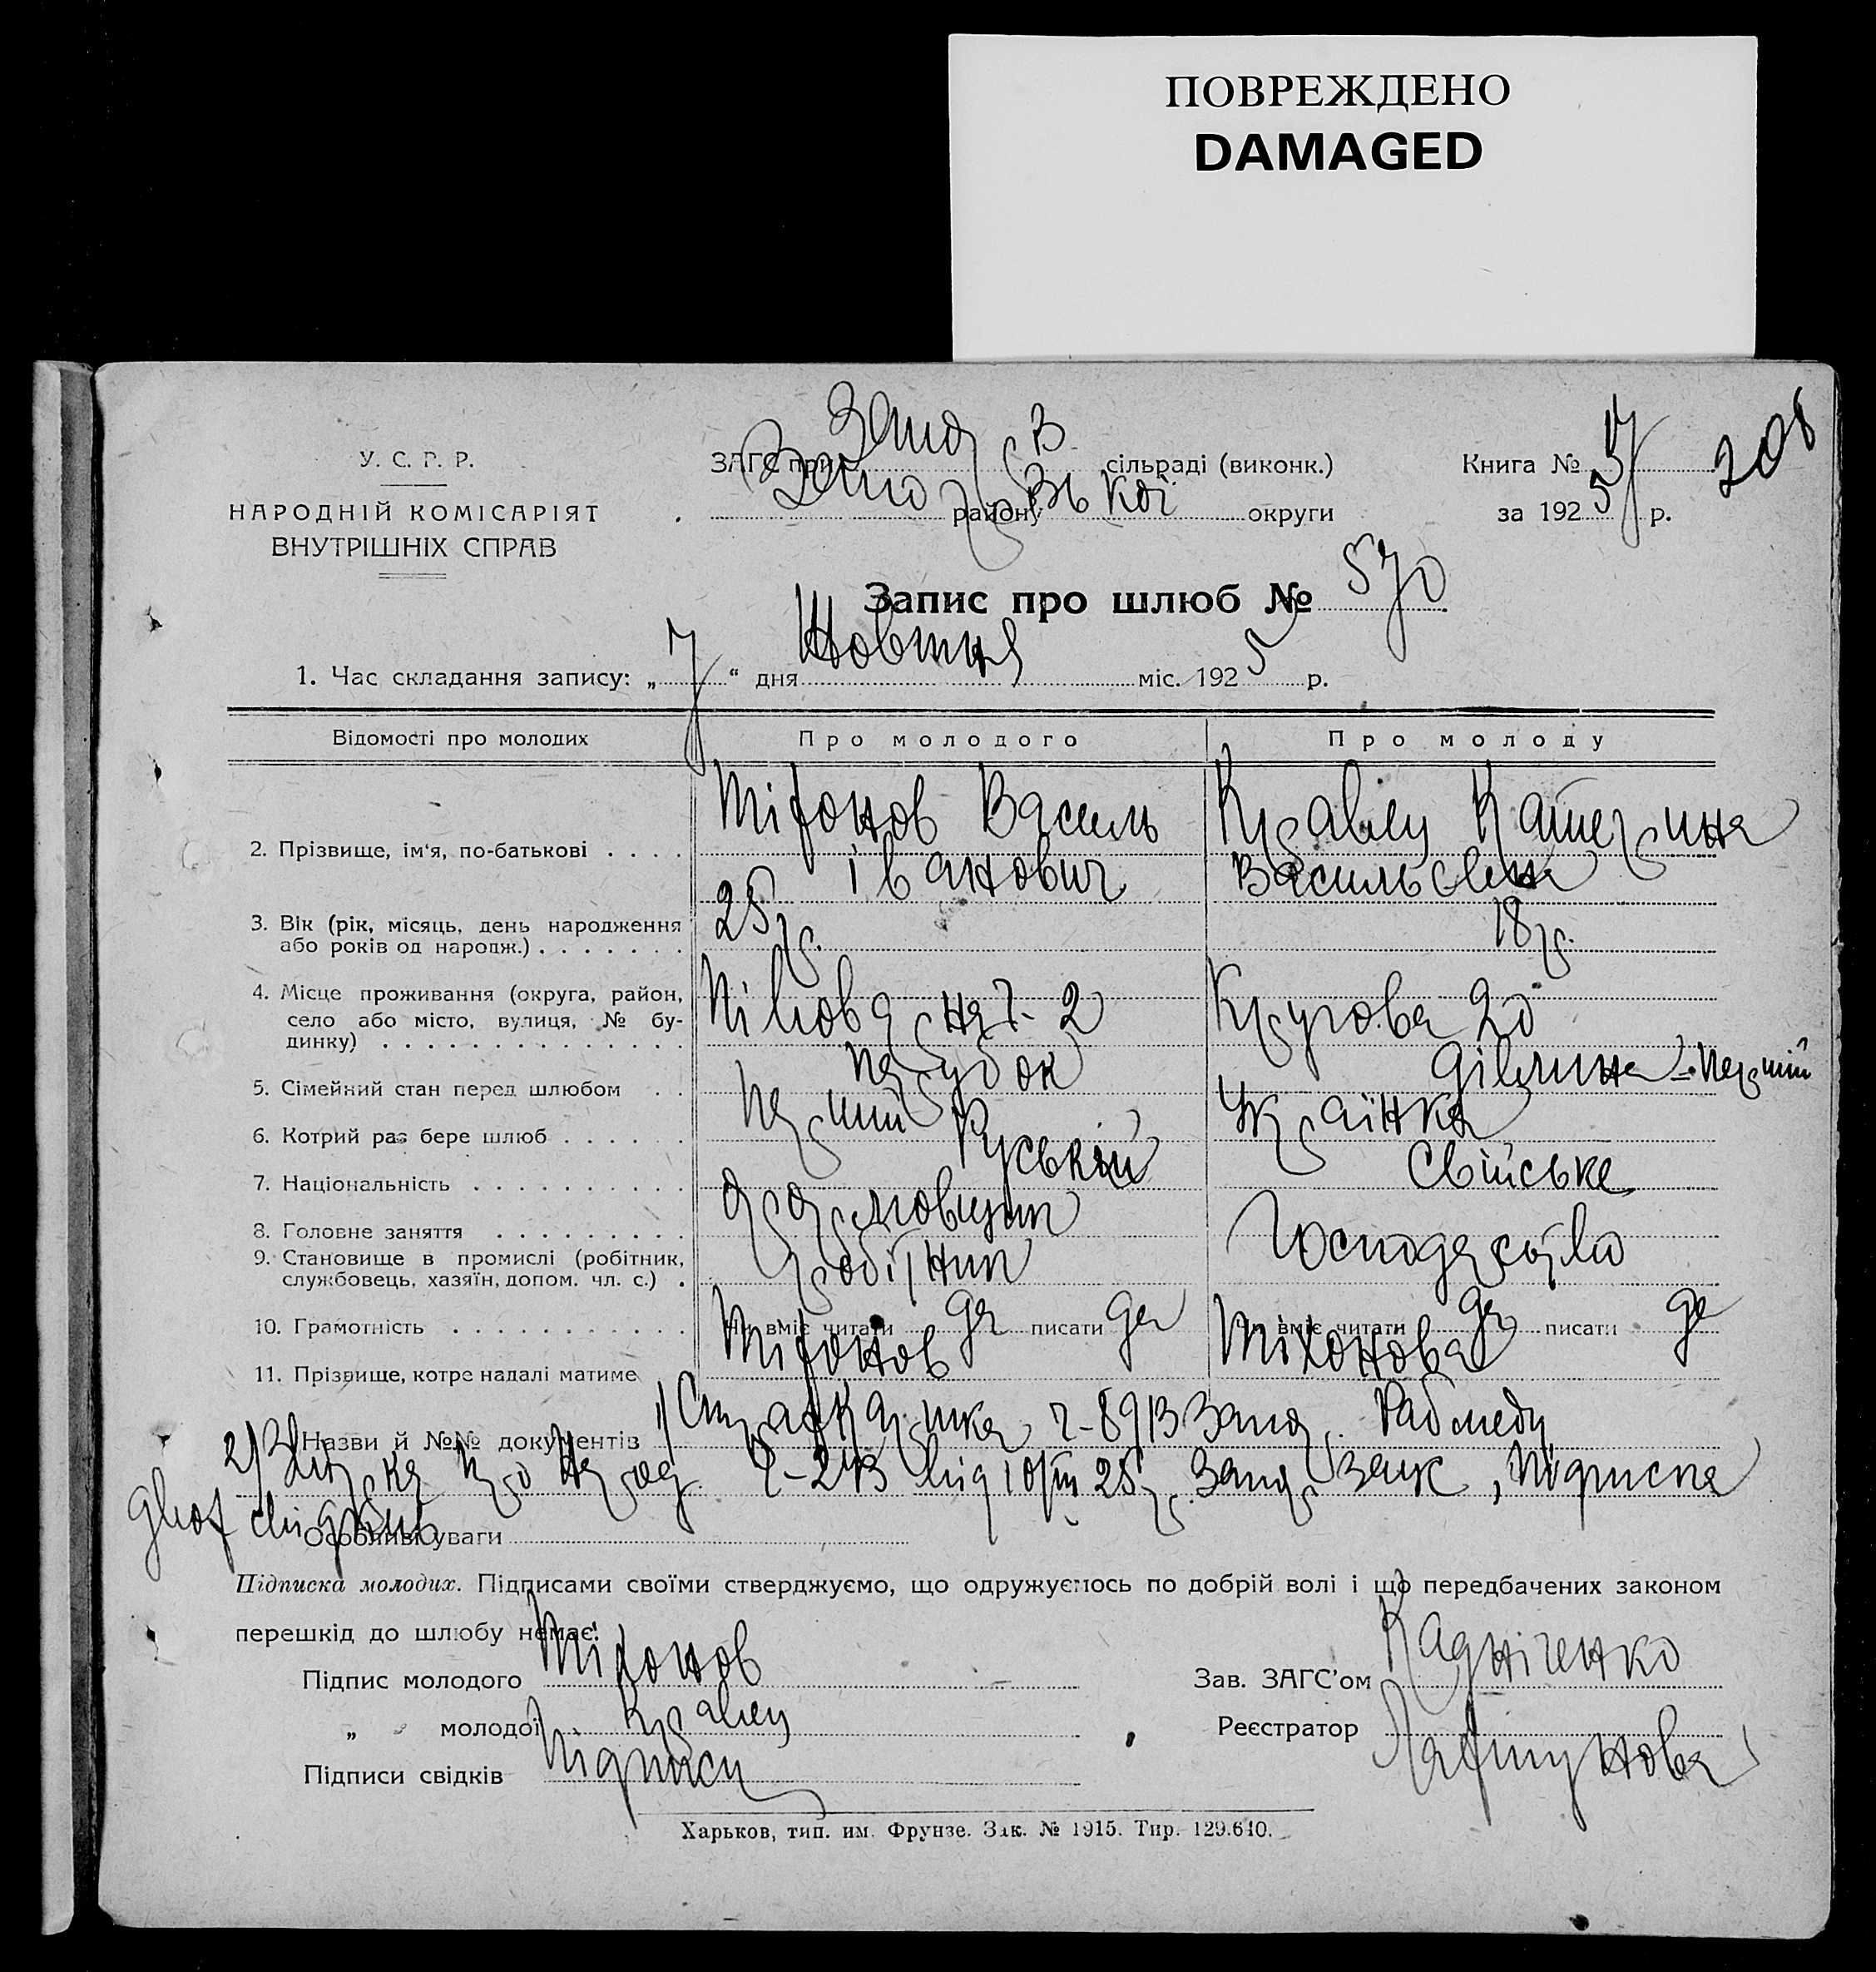 ПОВРЕЖДЕНО
DAMAGED
У. С. Р. Р.
НАРОДНІЙ КОМІСАРІЯТ
ВНУТРІШНІХ СПРАВ
ЗАГС при Запор. сільраді (виконк.)
району округи
Книга № 17
за 1925 р.
208
Запис про шлюб № 570
1. Час складання запису: „7“ дня Жовтня міс. 1925 р.
Відомості про молодих
Про молодого
Про молоду
2. Прізвище, ім'я, по-батькові . . . .
Тіхонов Василь
Іванович
Кравец Катерина
Васильевна
3. Вік (рік, місяць, день народження
або років од народж.) . . . . . . .
25 р.
18 р.
4. Місце проживання (округа, район,
село або місто, вулиця, № бу-
динку) . . . . . . . . . . . . . .
2
Кругова 20
5. Сімейний стан перед шлюбом . .
парубок
дівчина - перший
6. Котрий раз бере шлюб . . . . . .
перший
Українка
7. Національність . . . . . . . . . .
Руський
Свійське
8. Головне заняття . . . . . . . . .
9. Становище в промислі (робітник,
службовець, хазяїн, допом. чл. с.) .
робітник
Господарство
10. Грамотність . . . . . . . . . . .
Чи вміє читати да писати да
Чи вміє читати да писати да
11. Прізвище, котре надалі матиме
Тіхонов
Тіхонова
Назви й №№ документів 1) Страхкартка ч-8913 Запор. Рабмеду
2) Витяжка про народ. ч-243 від 10/ 25 р. Запор. Загс, Підписка
двох свідків
Особливі уваги
Підписка молодих. Підписами своїми стверджуємо, що одружуємось по добрій волі і що передбачених законом
перешкід до шлюбу немає.
Підпис молодого Тіхонов
„ „ молодої Кравец
Підписи свідків Підписи
Зав. ЗАГС'ом Кадніченко
Реєстратор
Харьков, тип. им. Фрунзе. Зак. № 1915. Тир. 129.610.